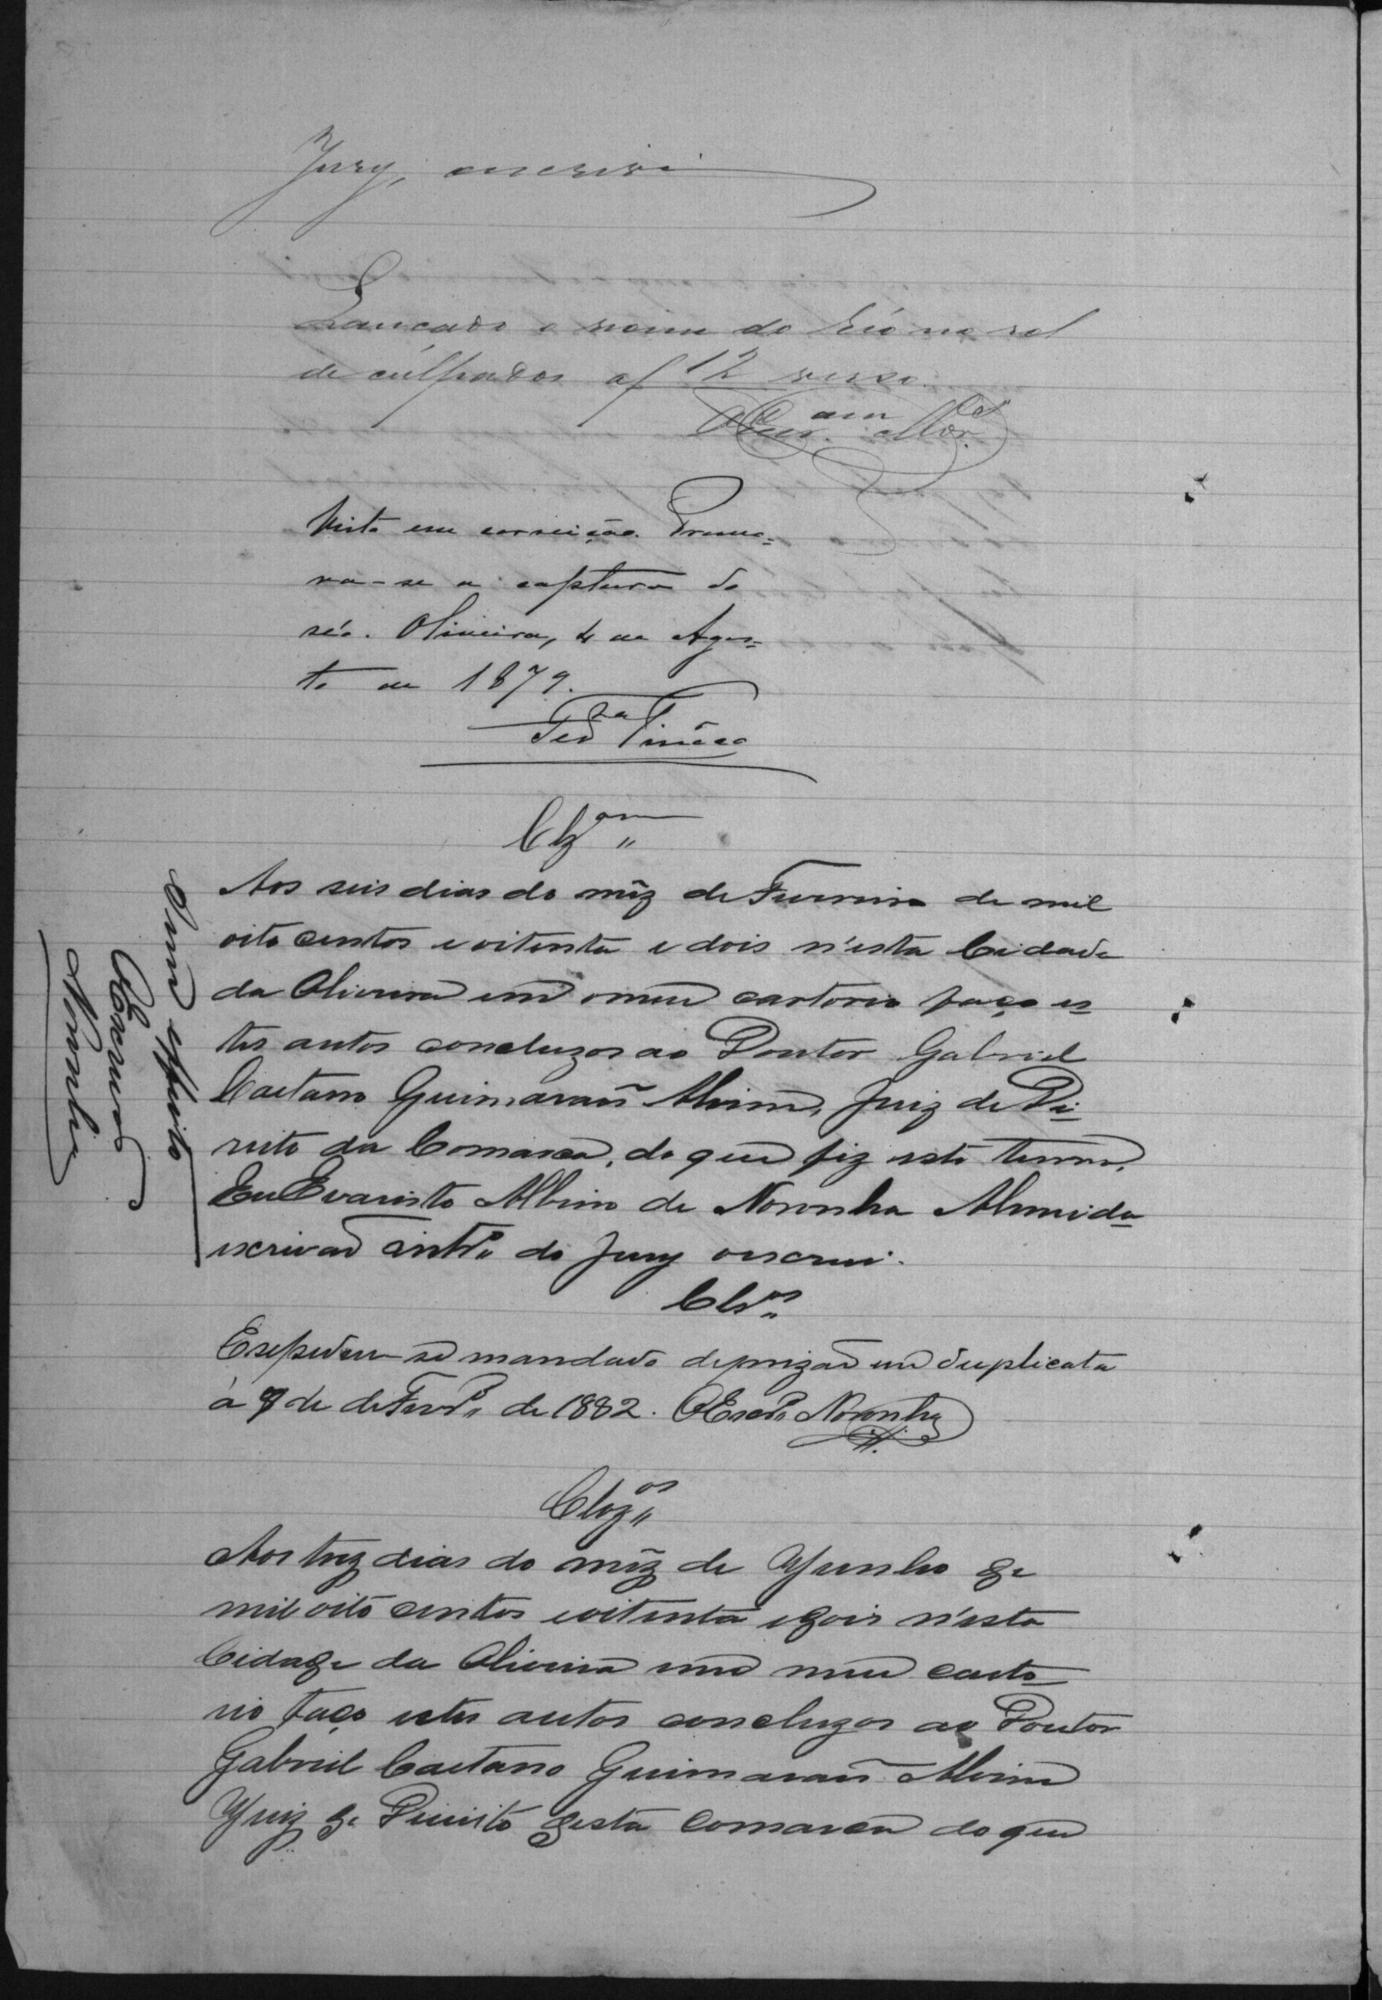 Jury, o escrivi
Lancado o nome do réo no rol
de culpados a f 12 verso.
Visto em correição. Promo-
va-se a captura do
réo. Oliveira, 4 de Agos-
to de 1879.
Clz.am
Aos seis dias do mêz de Fevereiro de mil
oito centos e oitenta e dois n'esta Cidade
da Oliveira em o meu cartorio faço es-
tes autos concluzos ao Doutor Gabriel
Caetano Guimarães Alvim, Juiz de Di-
reito da Comarca, do que fiz este termo.
Eu Evaristo Albino de Noronha Almeida
escrivão intr.º do Jury o escrevi.
Clz.os
Expediu-se mandado de prizão em duplicata
á 9 de de Fevr.º de 1882. O Escr.m Noronha
Clz.os
Aos trez dias do mêz de Junho de
mil oito centos e oitenta e dois n'esta
Cidade da Oliveira em o meu carto-
rio faço estes autos concluzos ao Doutor
Gabriel Caetano Guimarães Alvim
Juiz de Direito desta Comarca do que
O Escrivão
Noronha